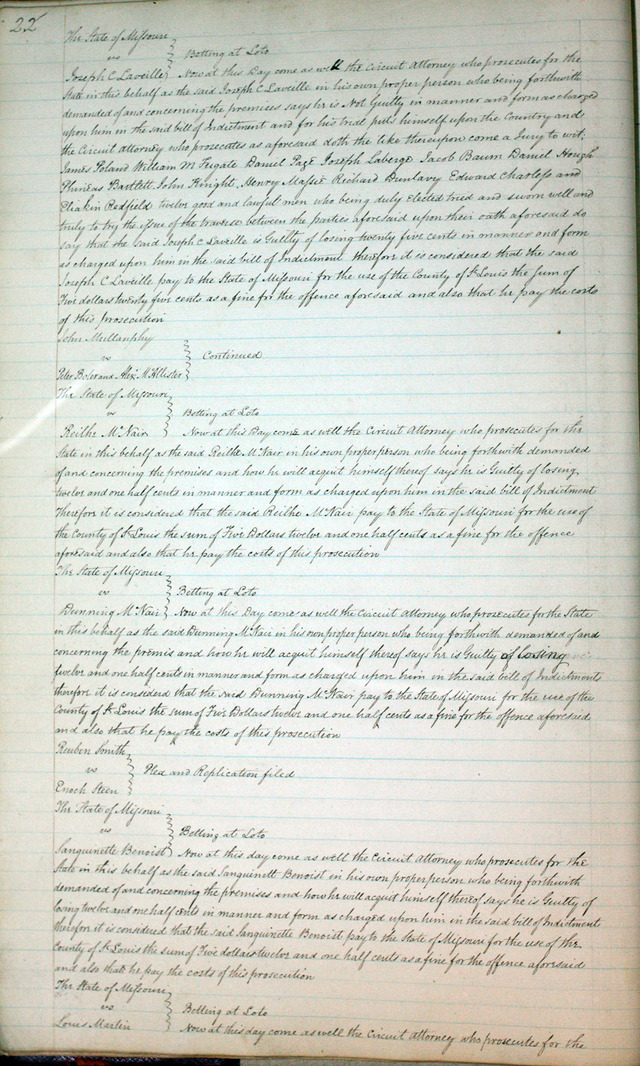 22
The State of Missouri
vs } Betting at Loto
Joseph C Laveille } Now at this Day come as well the Circuit Attorney who prosecutes for the
State in this behalf as the said Joseph C Laveille in his own proper person who being forthwith
demanded of and concerning the premises says he is Not Guilty in manner and form as charged
upon him in the said bill of Indictment and for his trial puts himself upon the Country and
the Circuit Attorney who prosecutes as aforesaid doth the like thereupon come a Jury to wit,
James Poland William M Fugate Daniel Page Joseph Laberge Jacob Baum Daniel Hough
Phineas Bartlett John Knight, Henry Massie Richard Dunlavy Edward Charless and
Eleakin Redfield twelve good and lawful men who being duly Elected tried and sworn well and
truly to try the issue of the traverse between the parties aforesaid upon their oath aforesaid do
say that the said Joseph C Laveille is Guilty of losing twenty five cents in manner and form
as charged upon him in the said bill of Indictment therefore it is considered that the said
Joseph C Laveille pay to the State of Missouri for the use of the County of St Louis the Sum of
Five dollars twenty five cents as a fine for the offence aforesaid and also that he pay the costs
of this prosecution
John Mullanphy
vs } Continued
Peter Boler and Alex McAllister
The State of Missouri
vs } Betting at Loto
Reilhe McNair } Now at this Day come as well the Circuit Attorney who prosecutes for the
State in this behalf as the said Reilhe McNair in his own proper person who being forthwith demanded
of and concerning the premises and how he will acquit himself thereof says he is Guilty of losing
twelve and one half cents in manner and form as charged upon him in the said bill of Indictment
Therefore it is considered that the said Reilhe McNair pay to the State of Missouri for the use of
the County of St Louis the sum of Five Dollars twelve and one half cents as a fine for the offence
aforesaid and also that he pay the costs of this prosecution
The State of Missouri
vs } Betting at Loto
Dunning McNair } Now at this Day come as well the Circuit Attorney who prosecutes for the State
in this behalf as the said Dunning McNair in his own proper person who being forthwith demanded of and
concerning the premis and how he will acquit himself thereof says he is Guilty of losing
twelve and one half cents in manner and form as charged upon him in the said bill of Indictments
therefore it is considerd that the said Dunning McNair pay to the State of Missouri for the use of the
County of St Louis the sum of Five Dollars twelve and one half cents as a fine for the offence aforesaid
and also that he pay the costs of this prosecution
Reuben Smith
vs } Plea and Replication filed
Enoch Steen
The State of Missouri
vs } Betting at Loto
Sanguinette Benoist } Now at this day come as well the Circuit Attorney who prosecutes for the
State in this behalf as the said Sanguinett Benoist in his own proper person who being forthwith
demanded of and concerning the premises and how he will acquit himself thereof says he is Guilty of
losing twelve and one half cents in manner and form as charged upon him in the said bill of Indictment
therefore it is considered that the said Sanguinette Benoist pay to the State of Missouri for the use of the
County of St Louis the sum of Five dollars twelve and one half cents as a fine for the offence aforesaid
and also that he pay the costs of this prosecution
The State of Missouri
vs } Betting at Loto
Louis Martin } Now at this day come as well the Circuit Attorney who prosecutes for the